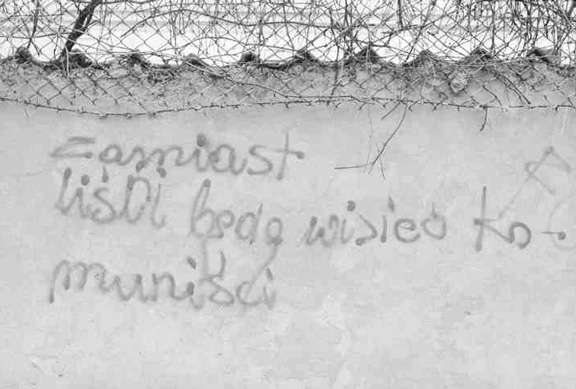 zamiast
liści będą wisieć ko-
muniści